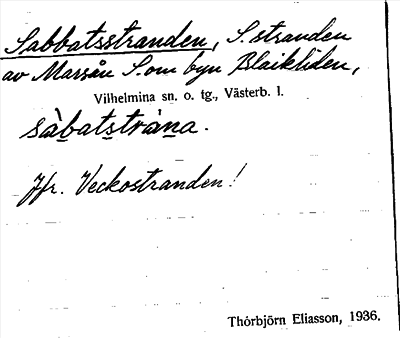 Sabbatsstranden, S. stranden
av Marsån S. om byn Blaikliden,
Vilhelmina sn. o. tg., Västerb. l.
sàbatstrána.
Jfr. Veckostranden!
Thorbjörn Eliasson, 1936.